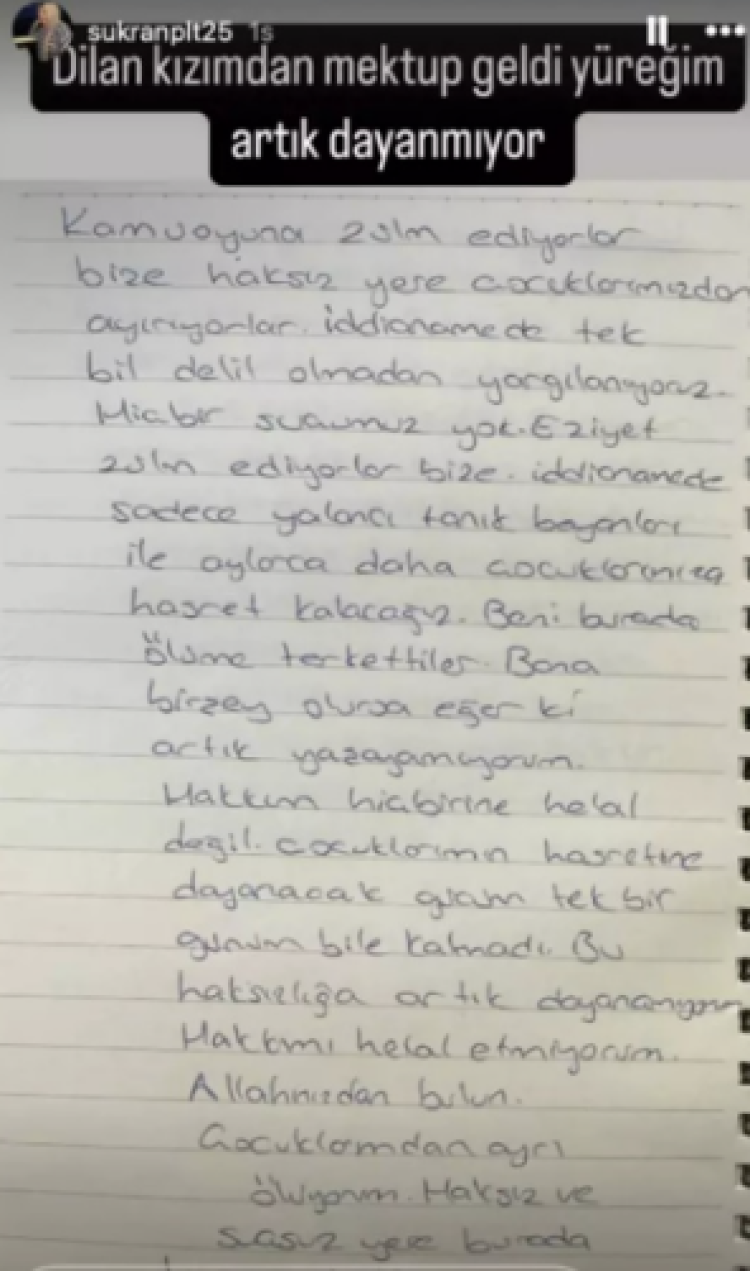 sukranplt25 1s
Dilan kızımdan mektup geldi yüreğim
artık dayanmıyor
Kamuoyuna zulm ediyorlar
bize haksız yere cocuklarımızdan
ayırıyorlar. iddianamede tek
bil delil olmadan yargılanıyoruz.
Hicbir sucumuz yok. Eziyet
zulm ediyorlar bize. iddianamede
sadece yalancı tanık beyanları
ile aylarca daha cocuklarımıza
hasret kalacağız. Beni burada
ölüme terkettiler. Bana
birzey olursa eğer ki
artık yazayamıyorum.
Hakkım hicbirine helal
değil. cocuklarımın hasretine
dayanacak gücüm tek bir
günüm bile kalmadı. Bu
haksızlığa artık dayanamıyorum
Hakkımı helal etmiyorum.
Allahınızdan bulun.
Cocuklarımdan ayrı
ölüyorum. Haksız ve
sucsuz yere burada